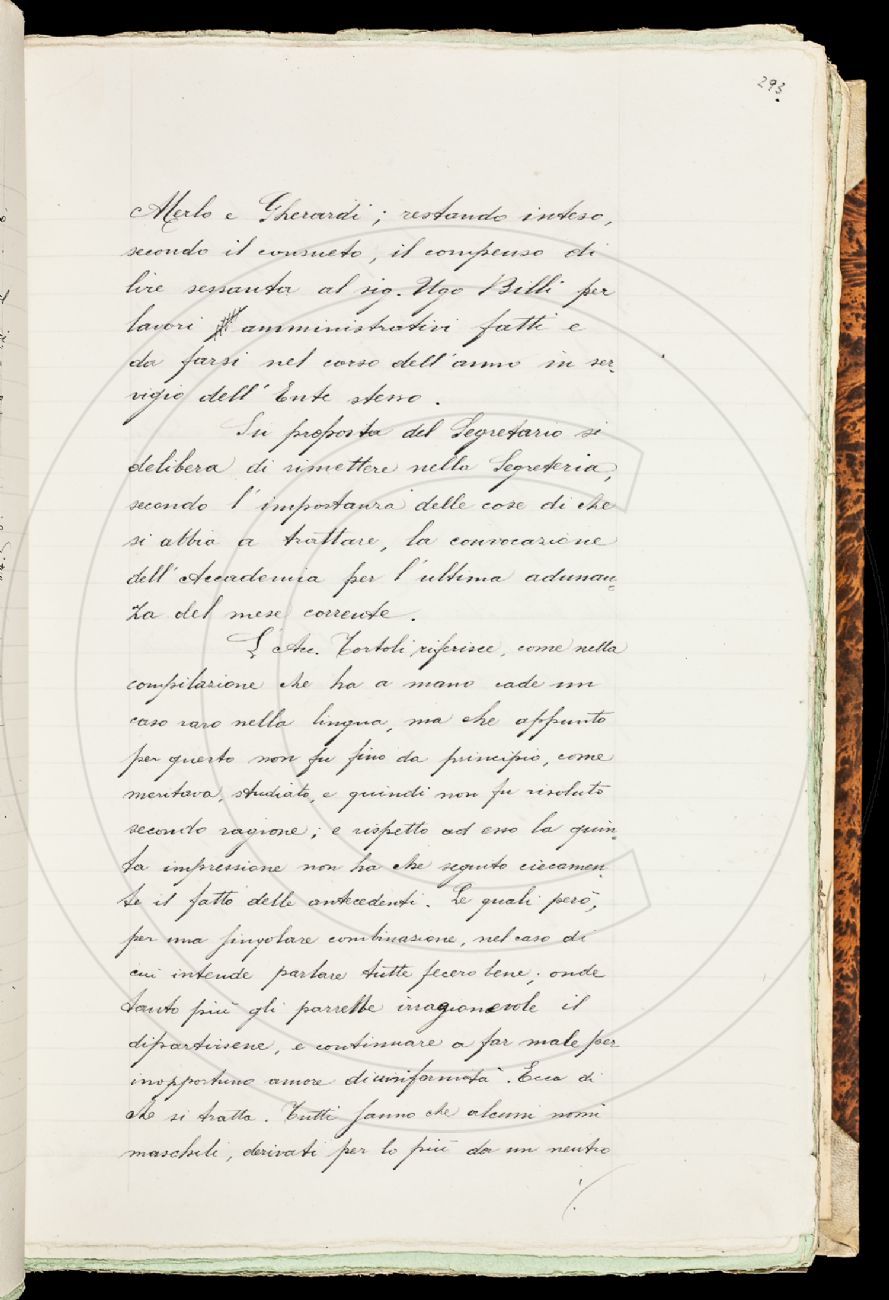 293.
Merlo e Gherardi; restando inteso,
secondo il consueto, il compenso di
lire sessanta al sig. Ugo Billi per
lavori amministrativi fatti e
da farsi nel corso dell'anno in ser-
vigio dell'Ente stesso.
Su proposta del Segretario si
delibera di rimettere nella Segreteria,
secondo l'importanza delle cose di che
si abbia a trattare, la convocazione
dell'Accademia per l'ultima adunan-
za del mese corrente.
L'Acc. Tortoli riferisce, come nella
compilazione che ha a mano cade un
caso raro nella lingua, ma che appunto
per questo non fu fino da principio, come
meritava, studiato, e quindi non fu risoluto
secondo ragione; e rispetto ad esso la quin-
ta impressione non ha che seguito ciecamen-
te il fatto delle antecedenti. Le quali però,
per una singolare combinazione, nel caso di
cui intende parlare tutte fecero bene; onde
tanto più gli parrebbe irragionevole il
dipartirsene, e continuare a far male per
inopportuno amore di uniformità. Ecco di
che si tratta. Tutti sanno che alcuni nomi
maschili, derivati per lo più da un neutro
./.